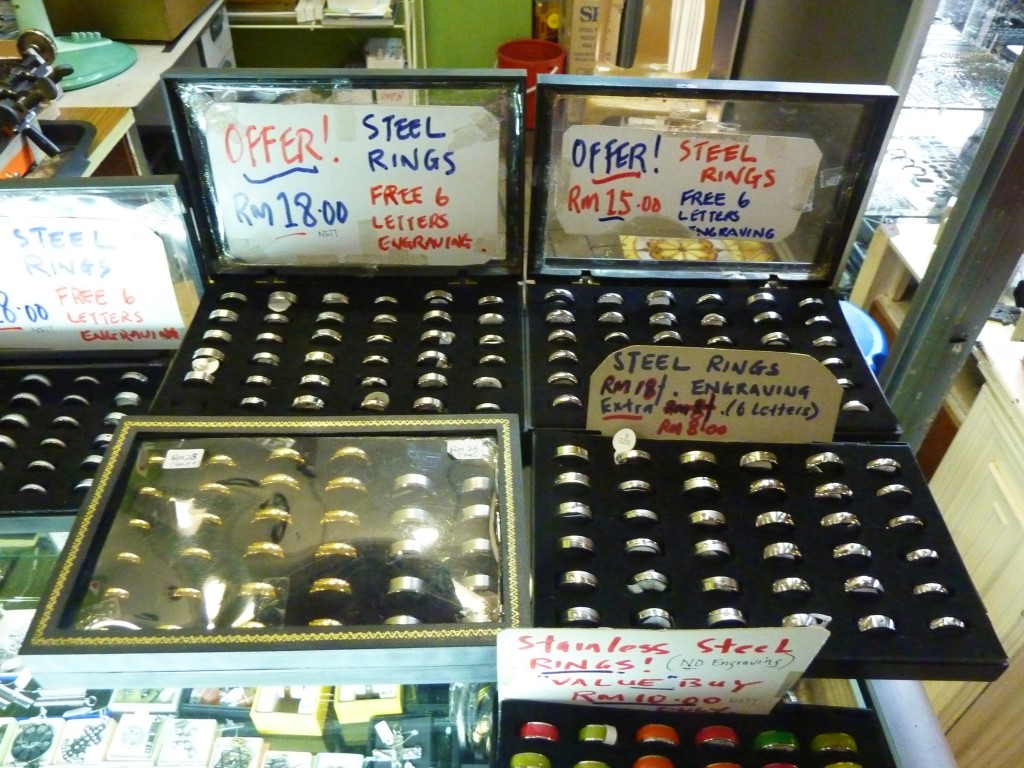 OFFER!
RM 18.00
NETT
STEEL
RINGS
FREE 6
LETTERS
ENGRAVING.
OFFER!
RM 15.00
STEEL
RINGS
FREE 6
LETTERS
ENGRAVING
STEEL
RINGS
8.00
FREE 6
LETTERS
ENGRAVING
STEEL RINGS
RM 18/. ENGRAVING
Extra (6 Letters)
RM 8.00
Stainless Steel
RINGS! (NO Engraving)
VALUE BUY
RM 10.00
NETT
ONLY